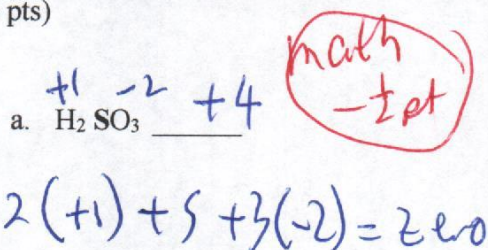 pts)
math
-½ pt
+1 -2 +4
a. H₂ SO₃ ______
2 (+1) + S + 3(-2) = zero